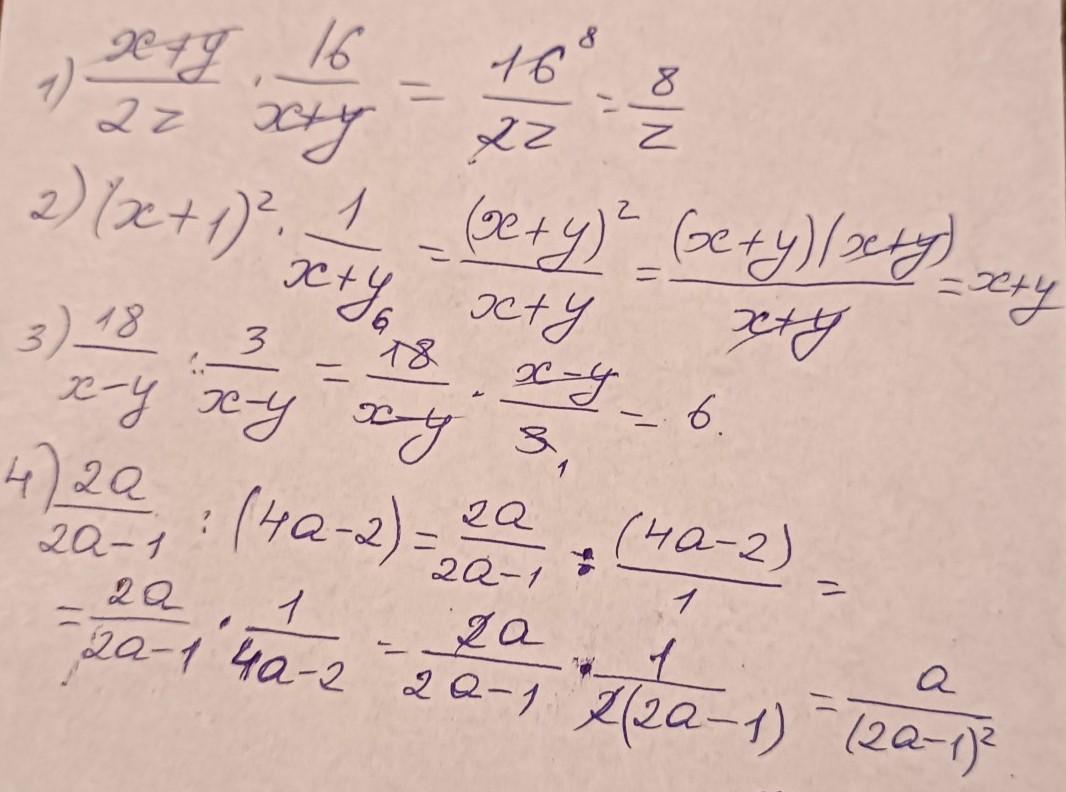 1) (x+y)/(2z) · 16/(x+y) = 16⁸/(2z) = 8/z
2) (x+1)² · 1/(x+y) = (x+y)²/(x+y) = (x+y)(x+y)/(x+y) = x+y
3) 18/(x-y) : 3/(x-y) = 18⁶/(x-y) · (x-y)/3₁ = 6.
4) 2a/(2a-1) : (4a-2) = 2a/(2a-1) : (4a-2)/1 =
= 2a/(2a-1) · 1/(4a-2) = 2a/(2a-1) · 1/(2(2a-1)) = a/(2a-1)²